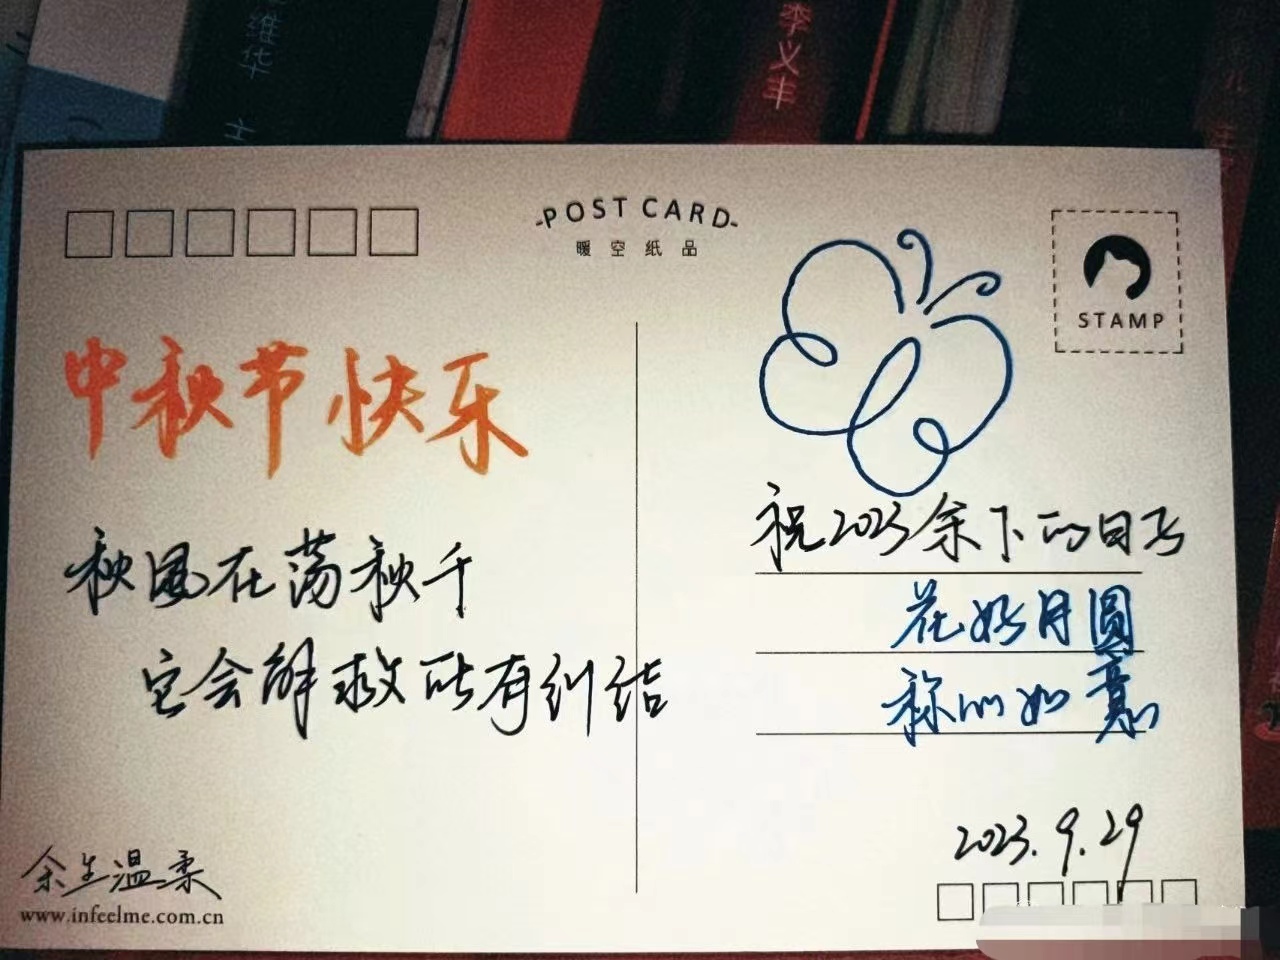 维华
主
李义丰
POST CARD
暖空纸品
STAMP
中秋节快乐
秋风在荡秋千
它会解救所有纠结
祝2023余下的日子
花好月圆
称心如意
2023.9.29
余生温柔
www.infeelme.com.cn